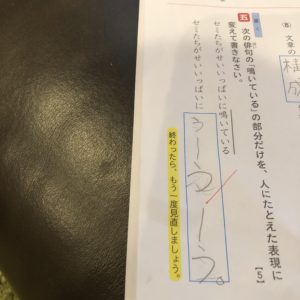 文章の
構成
五 次の俳句の「鳴いている」の部分だけを、人にたとえた表現に
変えて書きなさい。
【5】
セミたちがせいいっぱいに鳴いている
セミたちがせいいっぱいに
うーうーう。
終わったら、もう一度見直しましょう。